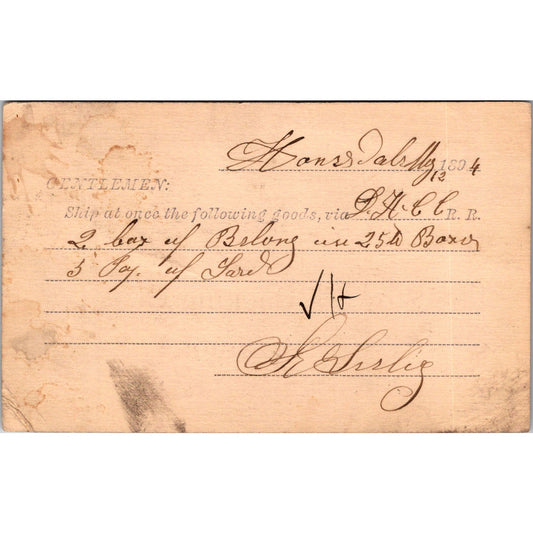 Honesdale My 12 1894
GENTLEMEN:
Ship at once the following goods, via D. H. C C R. R.
2 box of Belony in 25 lb Boxes
5 of Lard